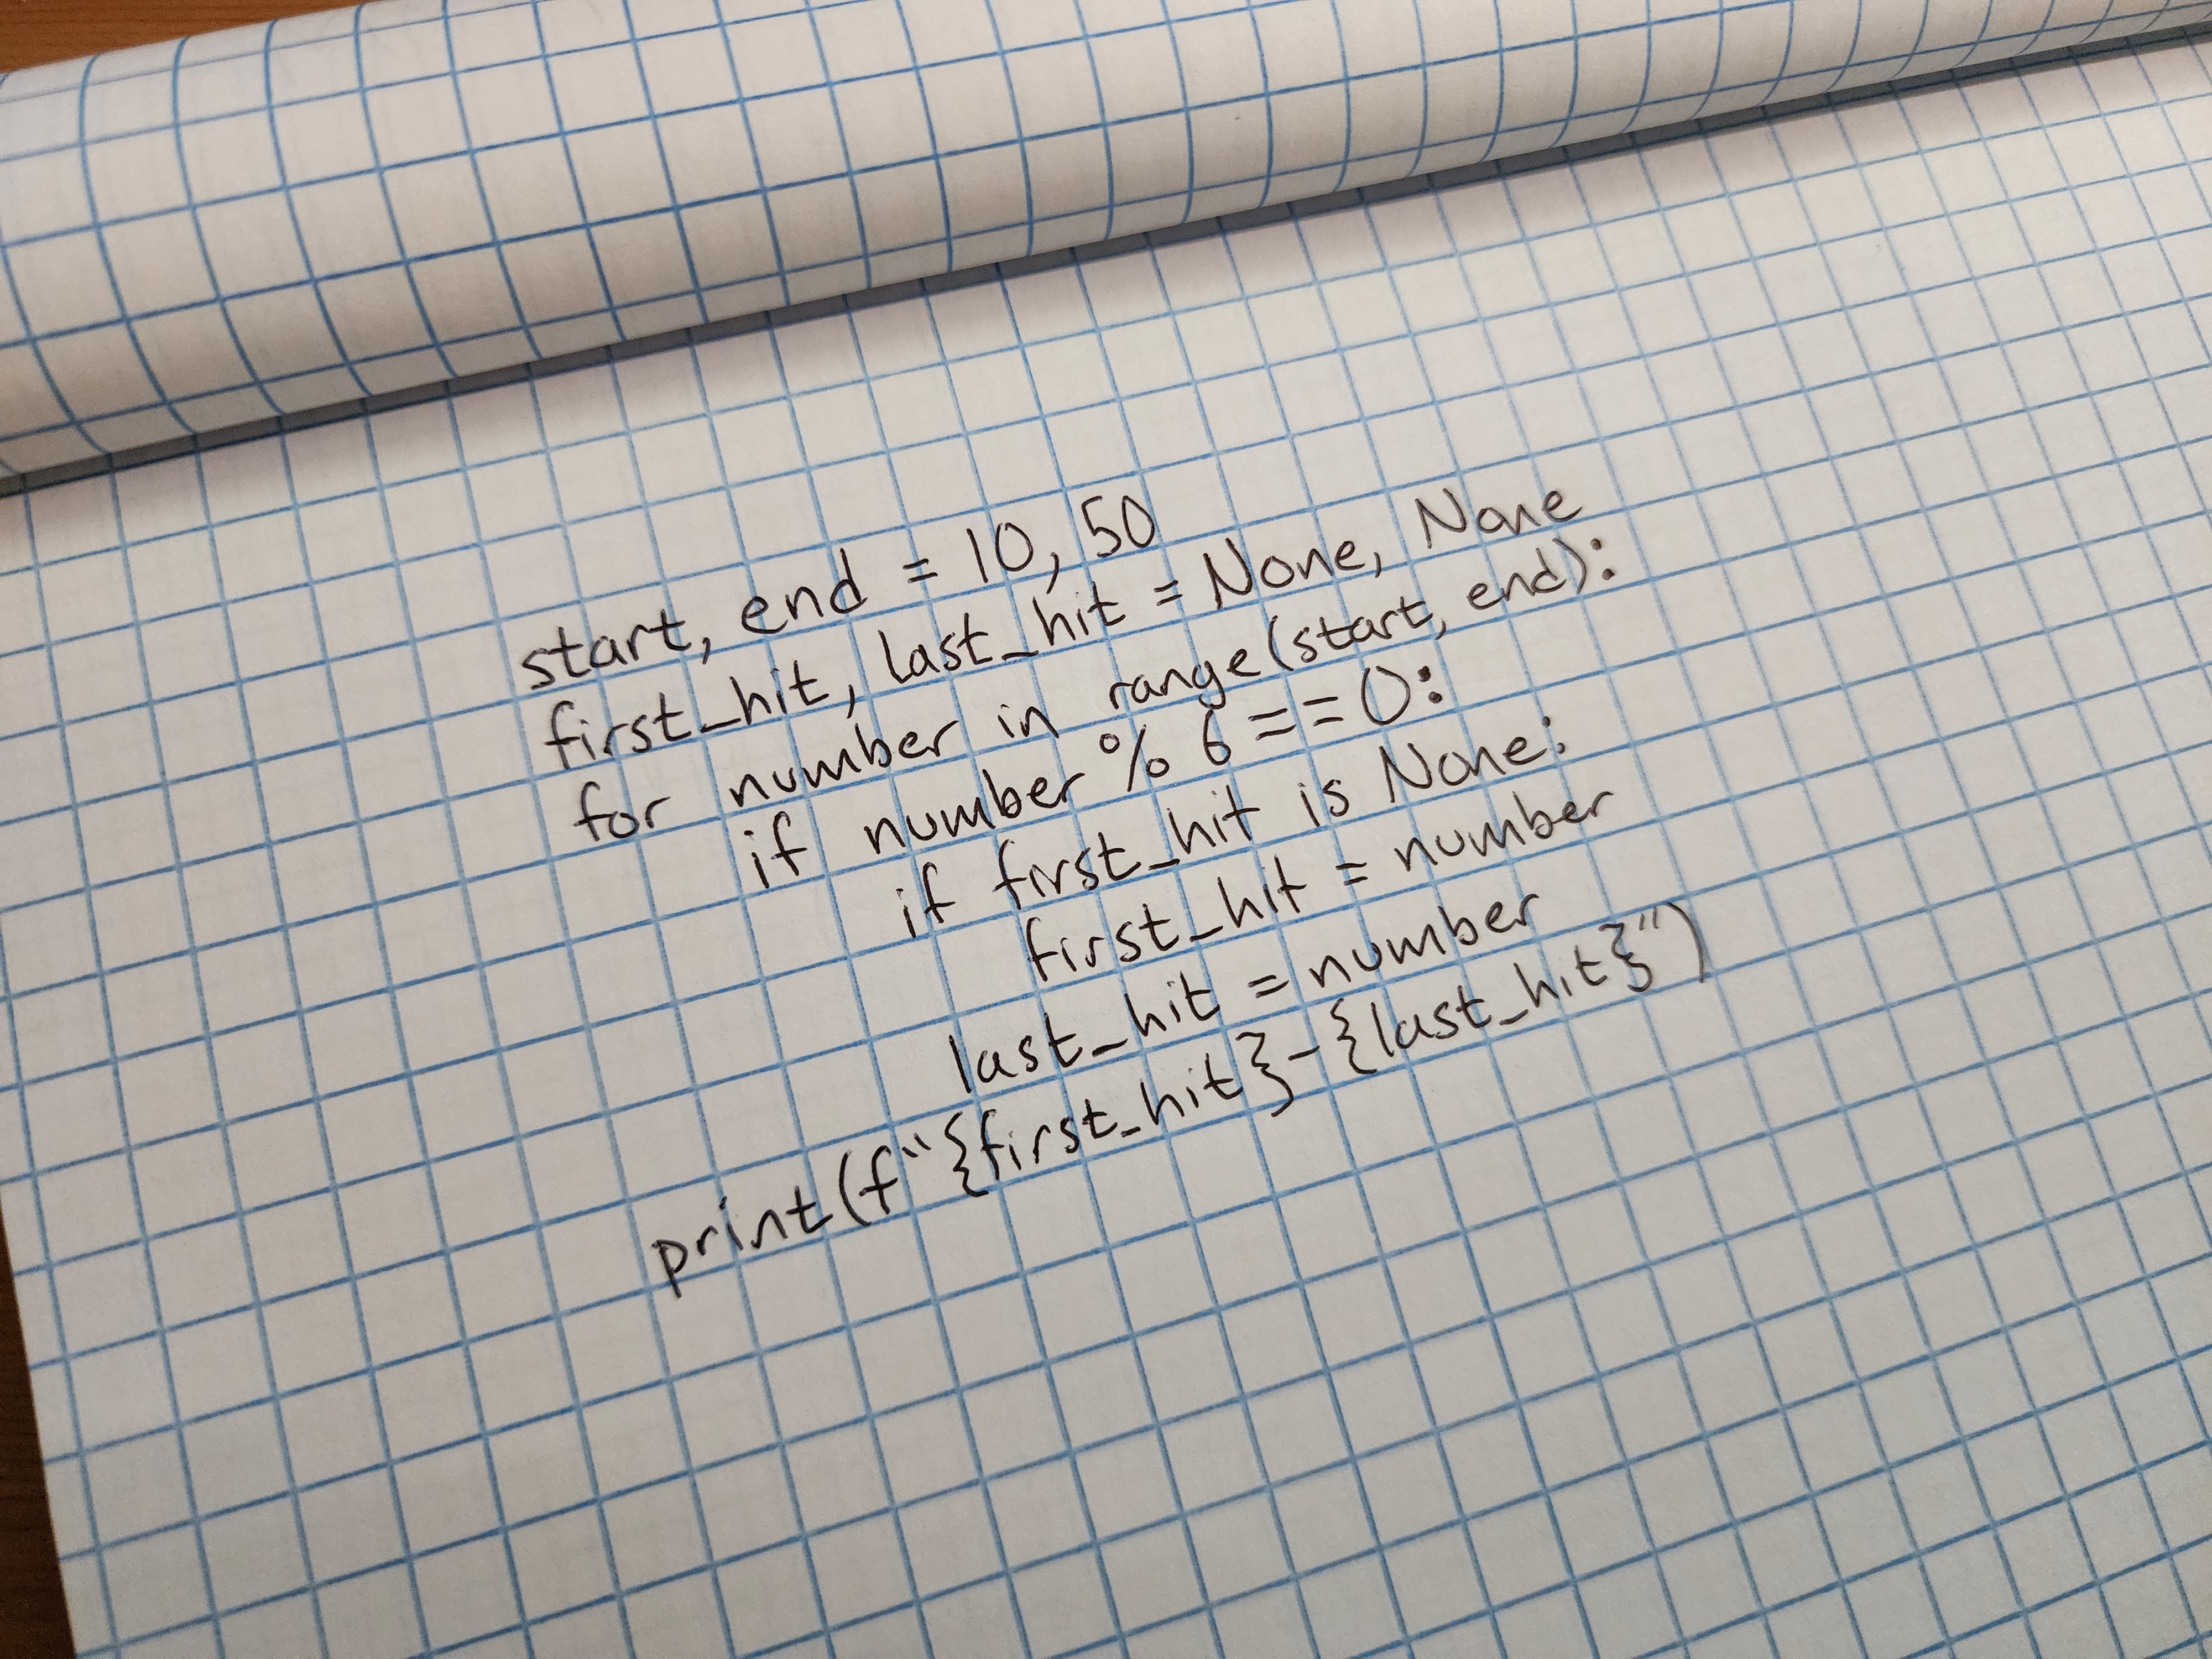 start, end = 10, 50
first_hit, last_hit = None, None
for number in range(start, end):
    if number % 6 == 0:
        if first_hit is None:
            first_hit = number
        last_hit = number
print(f"{first_hit}-{last_hit}")